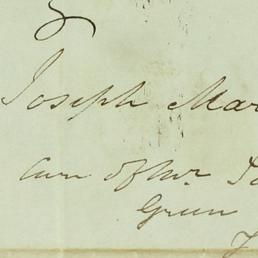 Joseph Mar
Care of Mr.
Green